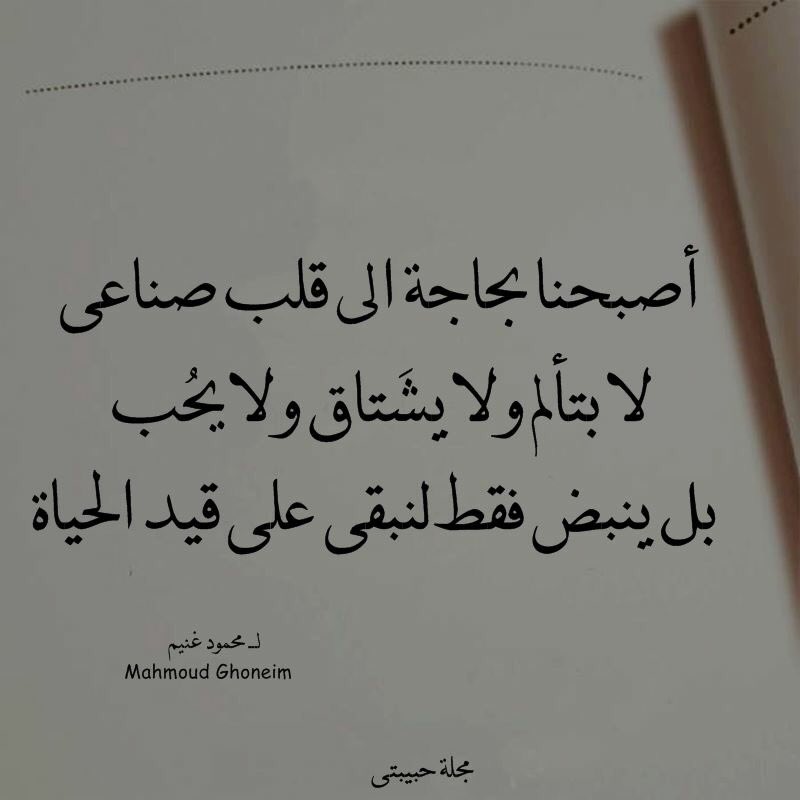 أصبحنا بحاجة الى قلب صناعى
لا بتألم ولا يشَتاق ولا يحُب
بل ينبض فقط لنبقى على قيد الحياة
لـ محمود غنيم
Mahmoud Ghoneim
مجلة حبيبتى